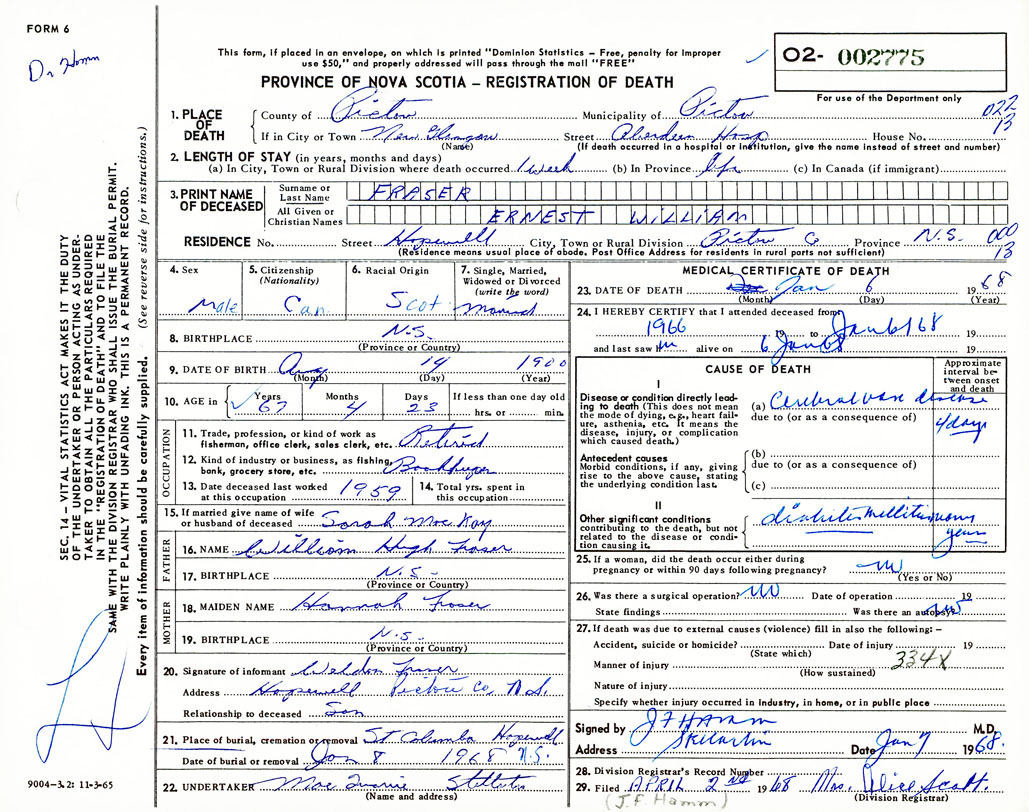 FORM 6
Dr Hamm
This form, if placed in an envelope, on which is printed "Dominion Statistics – Free, penalty for improper
use $50," and properly addressed will pass through the mail "FREE"
PROVINCE OF NOVA SCOTIA – REGISTRATION OF DEATH
O2- 002775
For use of the Department only
022
13
1. PLACE OF DEATH
County of Pictou Municipality of Pictou
If in City or Town New Glasgow Street Aberdeen Hosp House No.
(Name) (If death occurred in a hospital or institution, give the name instead of street and number)
2. LENGTH OF STAY (in years, months and days)
(a) In City, Town or Rural Division where death occurred 1 week (b) In Province Life (c) In Canada (if immigrant)
3. PRINT NAME OF DECEASED
Surname or Last Name FRASER
All Given or Christian Names ERNEST WILLIAM
RESIDENCE No. Street Hopewell City, Town or Rural Division Pictou Co Province N.S.
000
13
(Residence means usual place of abode. Post Office Address for residents in rural parts not sufficient)
4. Sex
Male
5. Citizenship
(Nationality)
Can.
6. Racial Origin
Scot.
7. Single, Married, Widowed or Divorced
(write the word)
Married
8. BIRTHPLACE N.S.
(Province or Country)
9. DATE OF BIRTH Aug 14 1900
(Month) (Day) (Year)
10. AGE in Years 67 Months 4 Days 23 If less than one day old hrs. or min.
OCCUPATION
11. Trade, profession, or kind of work as
fisherman, office clerk, sales clerk, etc. Retired
12. Kind of industry or business, as fishing,
bank, grocery store, etc. Bookkeeper
13. Date deceased last worked
at this occupation 1959
14. Total yrs. spent in
this occupation
15. If married give name of wife
or husband of deceased Sarah MacKay
FATHER
16. NAME William Hugh Fraser
17. BIRTHPLACE N.S.
(Province or Country)
MOTHER
18. MAIDEN NAME Hannah Fraser
19. BIRTHPLACE N.S.
(Province or Country)
20. Signature of informant Weldon Fraser
Address Hopewell Pictou Co, N.S.
Relationship to deceased Son
21. Place of burial, cremation or removal St Columba Hopewell
Date of burial or removal Jan 8 1968 N.S.
22. UNDERTAKER
(Name and address)
MEDICAL CERTIFICATE OF DEATH
23. DATE OF DEATH Jan 6 1968
(Month) (Day) (Year)
24. I HEREBY CERTIFY that I attended deceased from
1966 19 to Jan 6/68 19
and last saw him alive on 6 Jan 68 19
CAUSE OF DEATH
Approximate interval between onset and death
I
Disease or condition directly leading to death (This does not mean the mode of dying, e.g., heart failure, asthenia, etc. It means the disease, injury, or complication which caused death.)
(a) Cerebral vasc disease
due to (or as a consequence of)
4 days
Antecedent causes
Morbid conditions, if any, giving rise to the above cause, stating the underlying condition last.
(b)
due to (or as a consequence of)
(c)
II
Other significant conditions
contributing to the death, but not related to the disease or condition causing it.
diabetes mellitus many
years
25. If a woman, did the death occur either during
pregnancy or within 90 days following pregnancy?
(Yes or No)
26. Was there a surgical operation? no Date of operation 19
State findings Was there an autopsy? no
27. If death was due to external causes (violence) fill in also the following: –
Accident, suicide or homicide? Date of injury 19
(State which)
Manner of injury 334X
(How sustained)
Nature of injury
Specify whether injury occurred in industry, in home, or in public place
Signed by J F HAMM M.D.
Address Date Jan 7 1968.
28. Division Registrar's Record Number
29. Filed APRIL 2nd 1968 Mrs. Alice Scott.
(J.F. Hamm) (Division Registrar)
SEC. 14 – VITAL STATISTICS ACT MAKES IT THE DUTY
OF THE UNDERTAKER OR PERSON ACTING AS UNDER-
TAKER TO OBTAIN ALL THE PARTICULARS REQUIRED
IN THE "REGISTRATION OF DEATH" AND TO FILE THE
SAME WITH THE DIVISION REGISTRAR WHO SHALL ISSUE THE BURIAL PERMIT.
WRITE PLAINLY WITH UNFADING INK. THIS IS A PERMANENT RECORD.
Every item of information should be carefully supplied. (See reverse side for instructions.)
9004-3.2: 11-3-65